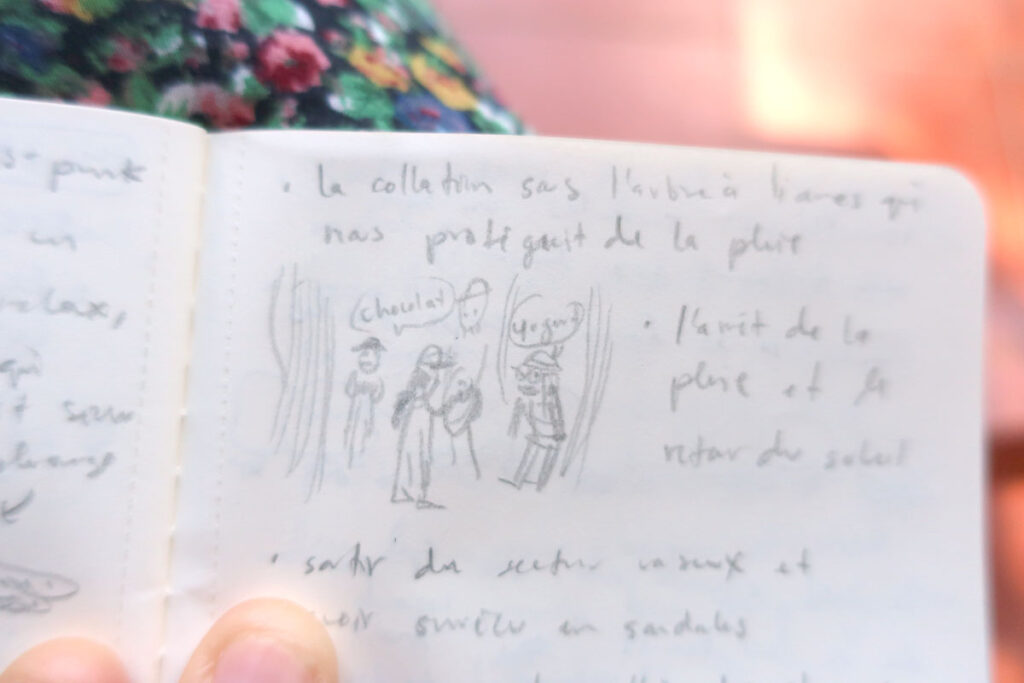 s-punk
un
relax,
qui
t
• la collation sous l'arbre à lianes qui
nous protégeait de la pluie
chocolat
yogourt
• l'arrêt de la
pluie et le
retour du soleil
• sortir du secteur vaseux et
avoir survécu en sandales